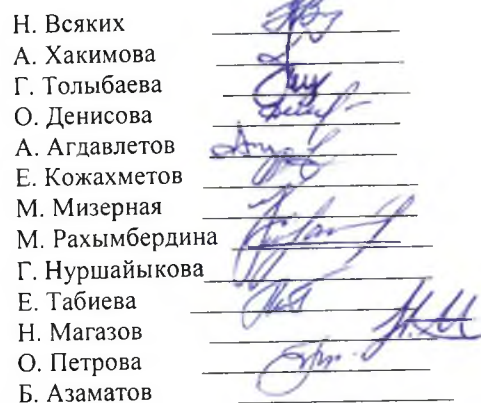 Н. Всяких
А. Хакимова
Г. Толыбаева
О. Денисова
А. Агдавлетов
Е. Кожахметов
М. Мизерная
М. Рахымбердина
Г. Нуршайыкова
Е. Табиева
Н. Магазов
О. Петрова
Б. Азаматов